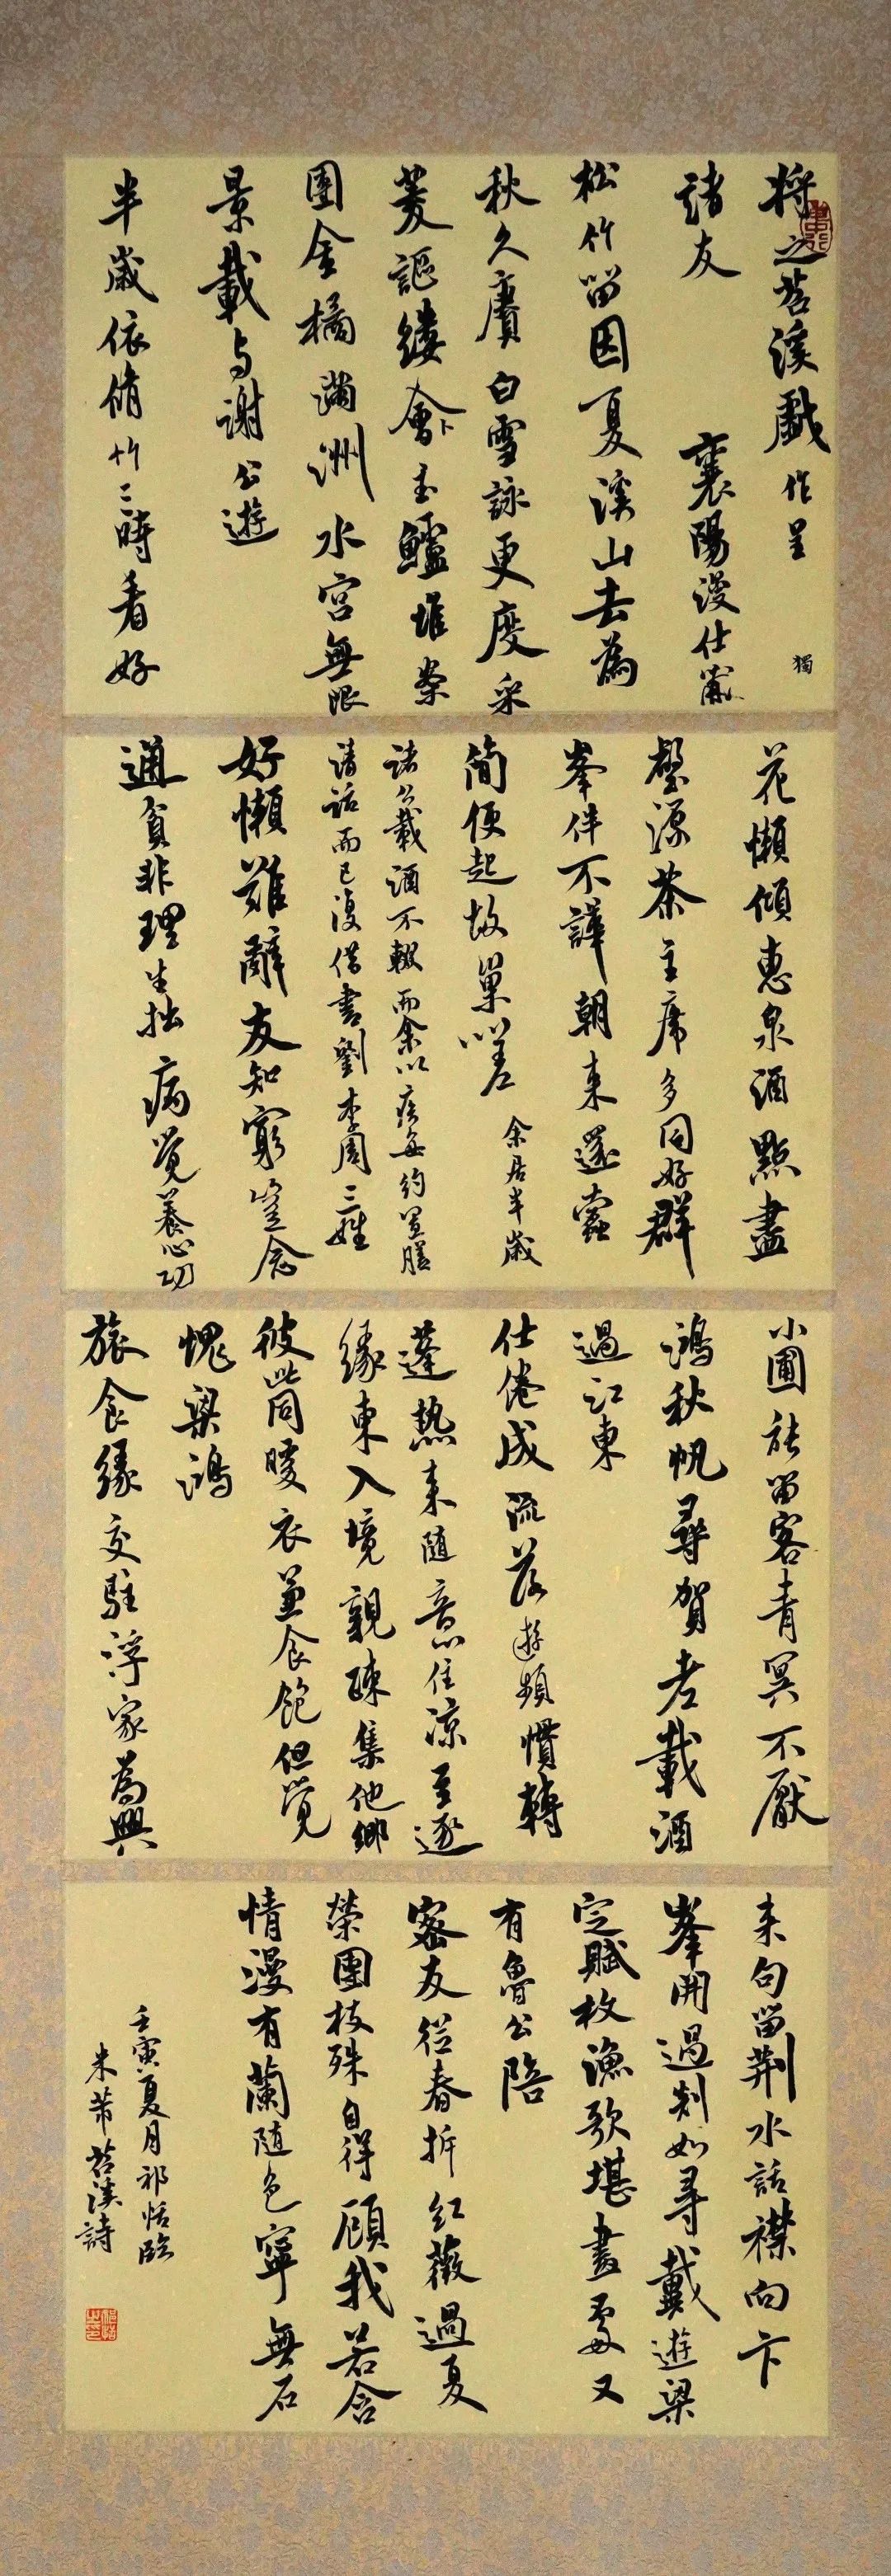 將之苕溪戲作呈
諸友
襄陽漫仕黻
獨
松竹留因夏溪山去為
秋久賡白雪詠更度采
菱謳縷會卜玉鱸堆案
團金橘滿洲水宮無限
景載与謝公遊
半歲依脩竹三時看好
花懶傾惠泉酒點盡
壑源茶主席多同好群
峯伴不譁朝来還蠹
簡便起故巢嗟
余居半歲
諸公載酒不輟而余以疾每約置膳
清話而已復借書劉李周三姓
好懶難辭友知窮豈念
通貧非理生拙病覺養心功
小圃能留客青冥不厭
鴻秋帆尋賀老載酒
過江東
仕倦成流落遊頻慣轉
蓬熱来隨意住涼至逐
緣東入境親疎集他鄉
彼此同暖衣兼食飽但覺
愧梁鴻
旅食緣交駐浮家為興
来句留荆水話襟向卞
峯開過剡如尋戴遊梁
定賦枚漁歌堪畫處又
有魯公陪
密友從春拆紅薇過夏
榮團枝殊自得顧我若含
情漫有蘭隨色寧無石
壬寅夏月祁恬臨
米芾苕溪詩